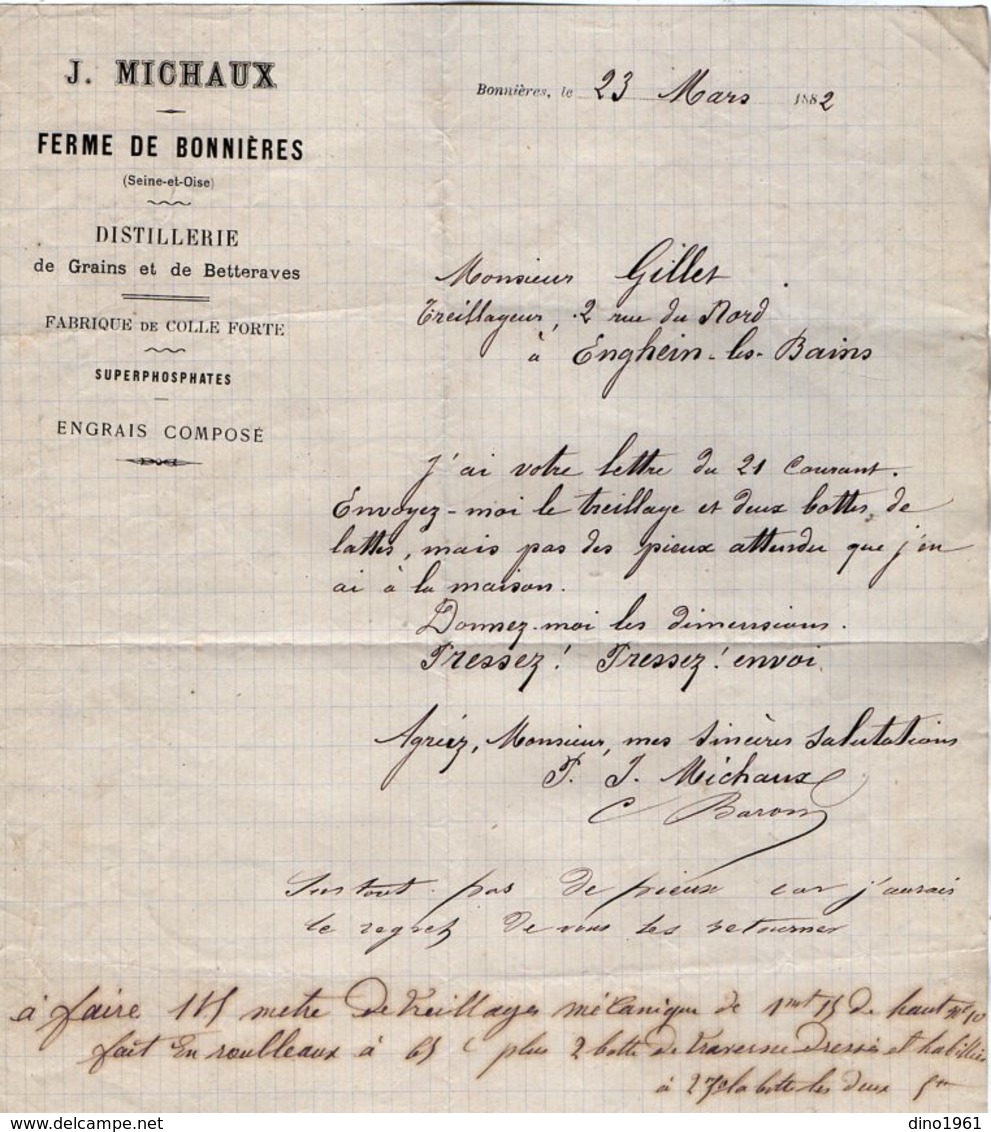 J. MICHAUX
FERME DE BONNIÈRES
(Seine-et-Oise)
DISTILLERIE
de Grains et de Betteraves
FABRIQUE DE COLLE FORTE
SUPERPHOSPHATES
ENGRAIS COMPOSÉ
Bonnières, le 23 Mars 1882
Monsieur Gillet
Treillageur, 2 rue du Nord
à Enghein-les-Bains
J'ai votre lettre du 21 Courant.
Envoyez-moi le treillage et deux bottes de
lattes, mais pas des pieux attendu que j'en
ai à la maison.
Donnez-moi les dimensions.
Pressez! Pressez! envoi
Agréez, Monsieur, mes sincères salutations
P. J. Michaux
C Baron
Surtout pas de pieux car j'aurais
le regret de vous les retourner
à faire 115 metre de treillages mécanique de 1mt 15 de haut
fait En roulleaux à 65 c plus 2 botte de traverse Dressé et habilliés
à 2 la botte les deux
dino1961